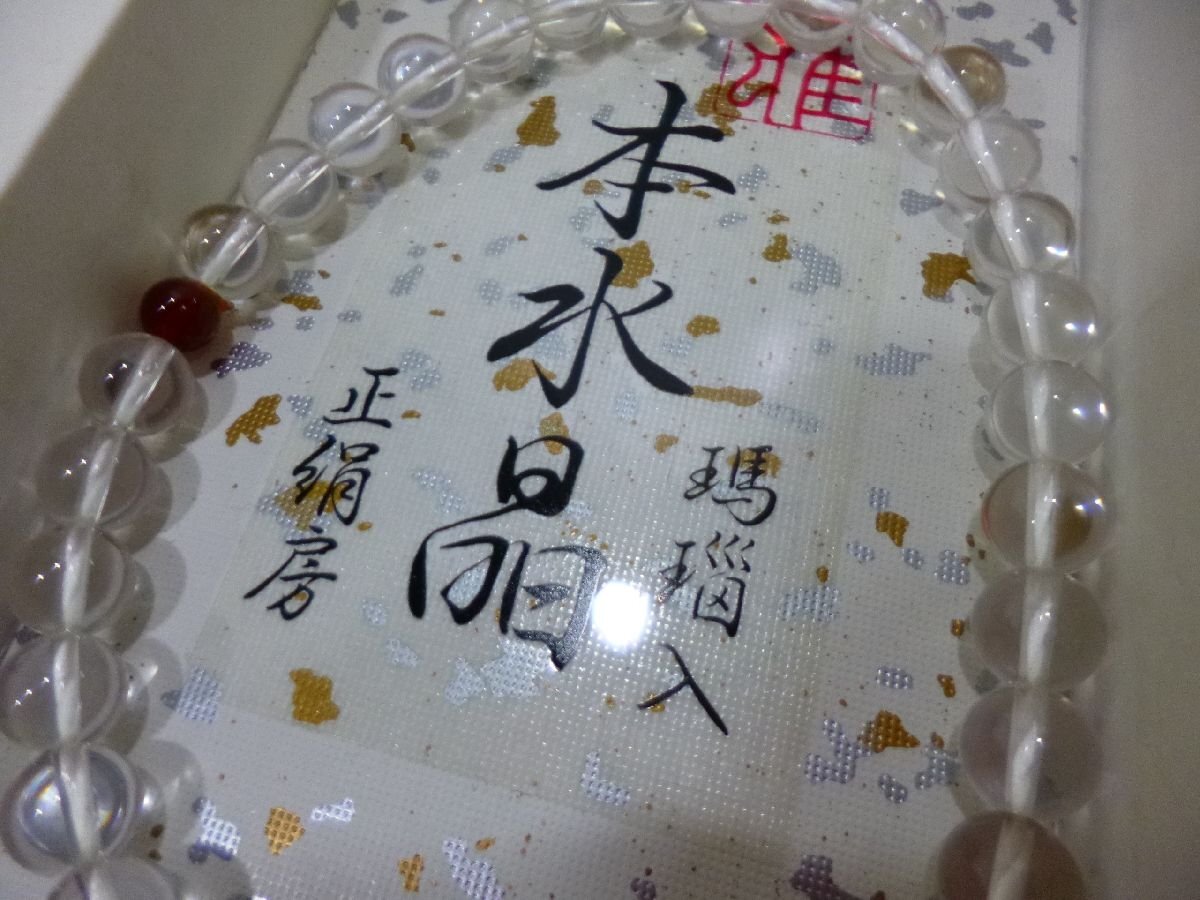 瑪瑙入
本水晶
正絹房